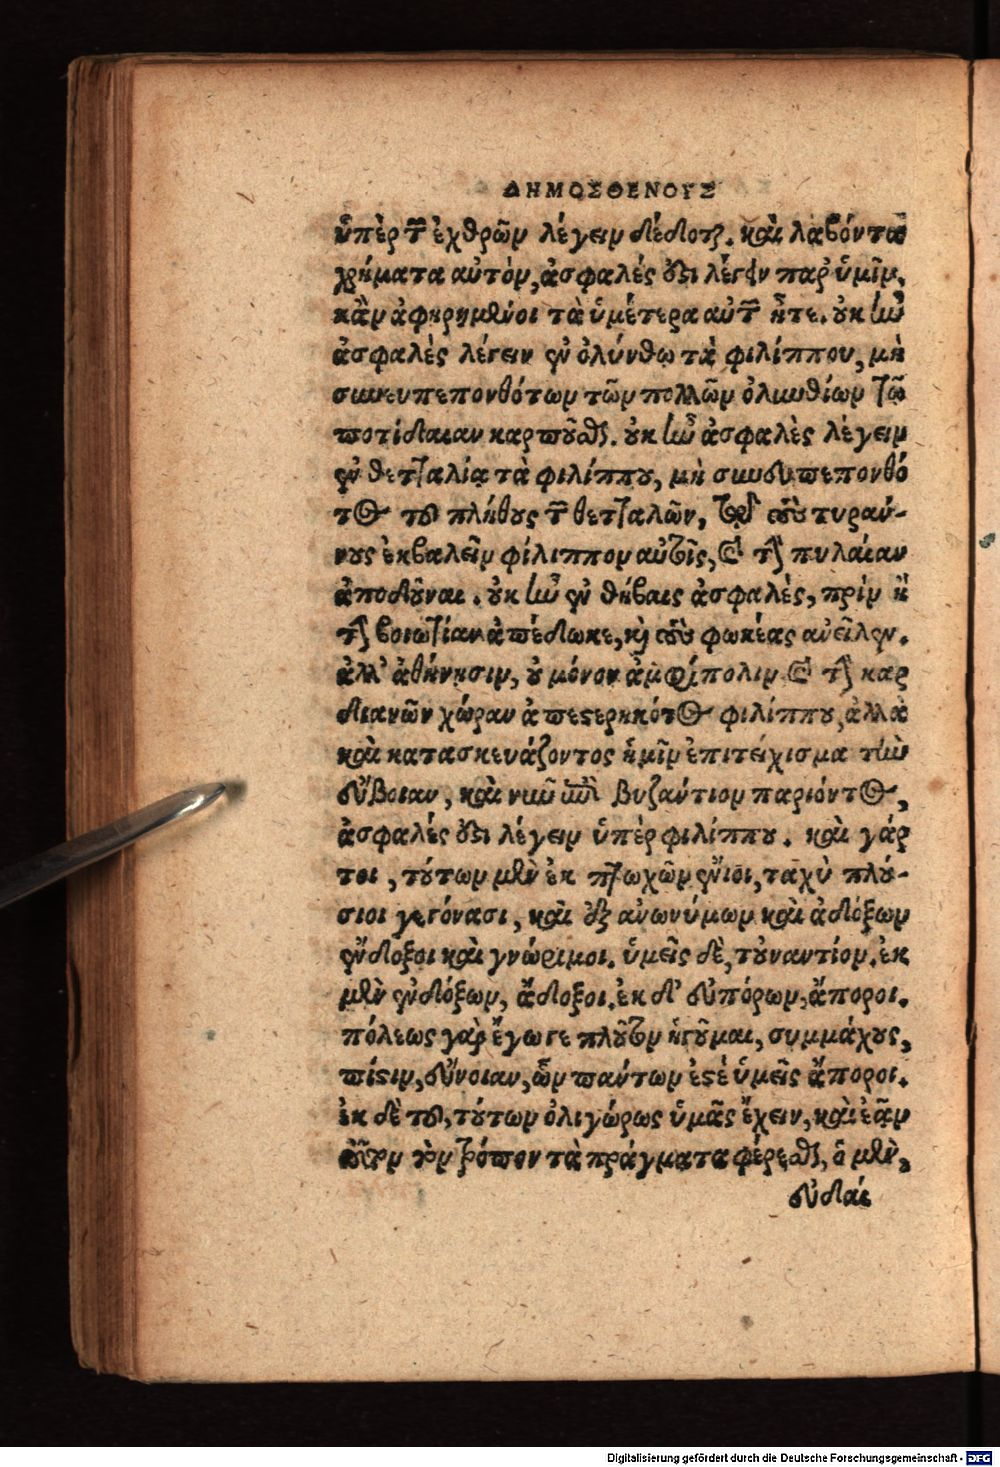 ΔΗΜΟΣΘΕΝΟΥΣ
ὑπὲρ τῶν ἐχθρῶν λέγειν δέδοται. καὶ λαβόντα
χρήματα αὐτὸν, ἀσφαλές ἐστι λέγειν παρ' ὑμῖν,
κἂν ἀφῃρημένοι τὰ ὑμέτερα αὐτῶν ἦτε. οὐκ ἦν
ἀσφαλὲς λέγειν ἐν ὀλύνθῳ τὰ φιλίππου, μὴ
συνευπεπονθότων τῶν πολλῶν ὀλυνθίων τῷ
ποτίδαιαν καρποῦσθαι. οὐκ ἦν ἀσφαλὲς λέγειν
ἐν θετταλίᾳ τὰ φιλίππου, μὴ συνευπεπονθό
τος τοῦ πλήθους τῶν θετταλῶν, τῷ τοὺς τυράν-
νους ἐκβαλεῖν φίλιππον αὐτοῖς, καὶ τὴν πυλαίαν
ἀποδοῦναι. οὐκ ἦν ἐν θήβαις ἀσφαλὲς, πρὶν ἢ
τὴν βοιωτίαν ἀπέδωκε, καὶ τοὺς φωκέας ἀνεῖλεν.
ἀλλ' ἀθήνησιν, οὐ μόνον ἀμφίπολιν καὶ τὴν καρ
διανῶν χώραν ἀπεστερηκότος φιλίππου, ἀλλὰ
καὶ κατασκευάζοντος ἡμῖν ἐπιτείχισμα τὴν
εὔβοιαν, καὶ νῦν ἐπὶ βυζάντιον παριόντος,
ἀσφαλές ἐστι λέγειν ὑπὲρ φιλίππου. καὶ γάρ
τοι, τούτων μὲν ἐκ πτωχῶν ἔνιοι, ταχὺ πλού-
σιοι γεγόνασι, καὶ ἐξ ἀνωνύμων καὶ ἀδόξων
ἔνδοξοι καὶ γνώριμοι. ὑμεῖς δὲ, τοὐναντίον. ἐκ
μὲν ἐνδόξων, ἄδοξοι. ἐκ δ' εὐπόρων, ἄποροι.
πόλεως γὰρ ἔγωγε πλοῦτον ἡγοῦμαι, συμμάχους,
πίστιν, εὔνοιαν, ὧν πάντων ἐστὲ ὑμεῖς ἄποροι.
ἐκ δὲ τοῦ, τούτων ὀλιγώρως ὑμᾶς ἔχειν, καὶ ἐᾶν
τοῦτον τὸν τρόπον τὰ πράγματα φέρεσθαι, ὁ μὲν,
εὐδαί
Digitalisierung gefördert durch die Deutsche Forschungsgemeinschaft - DFG